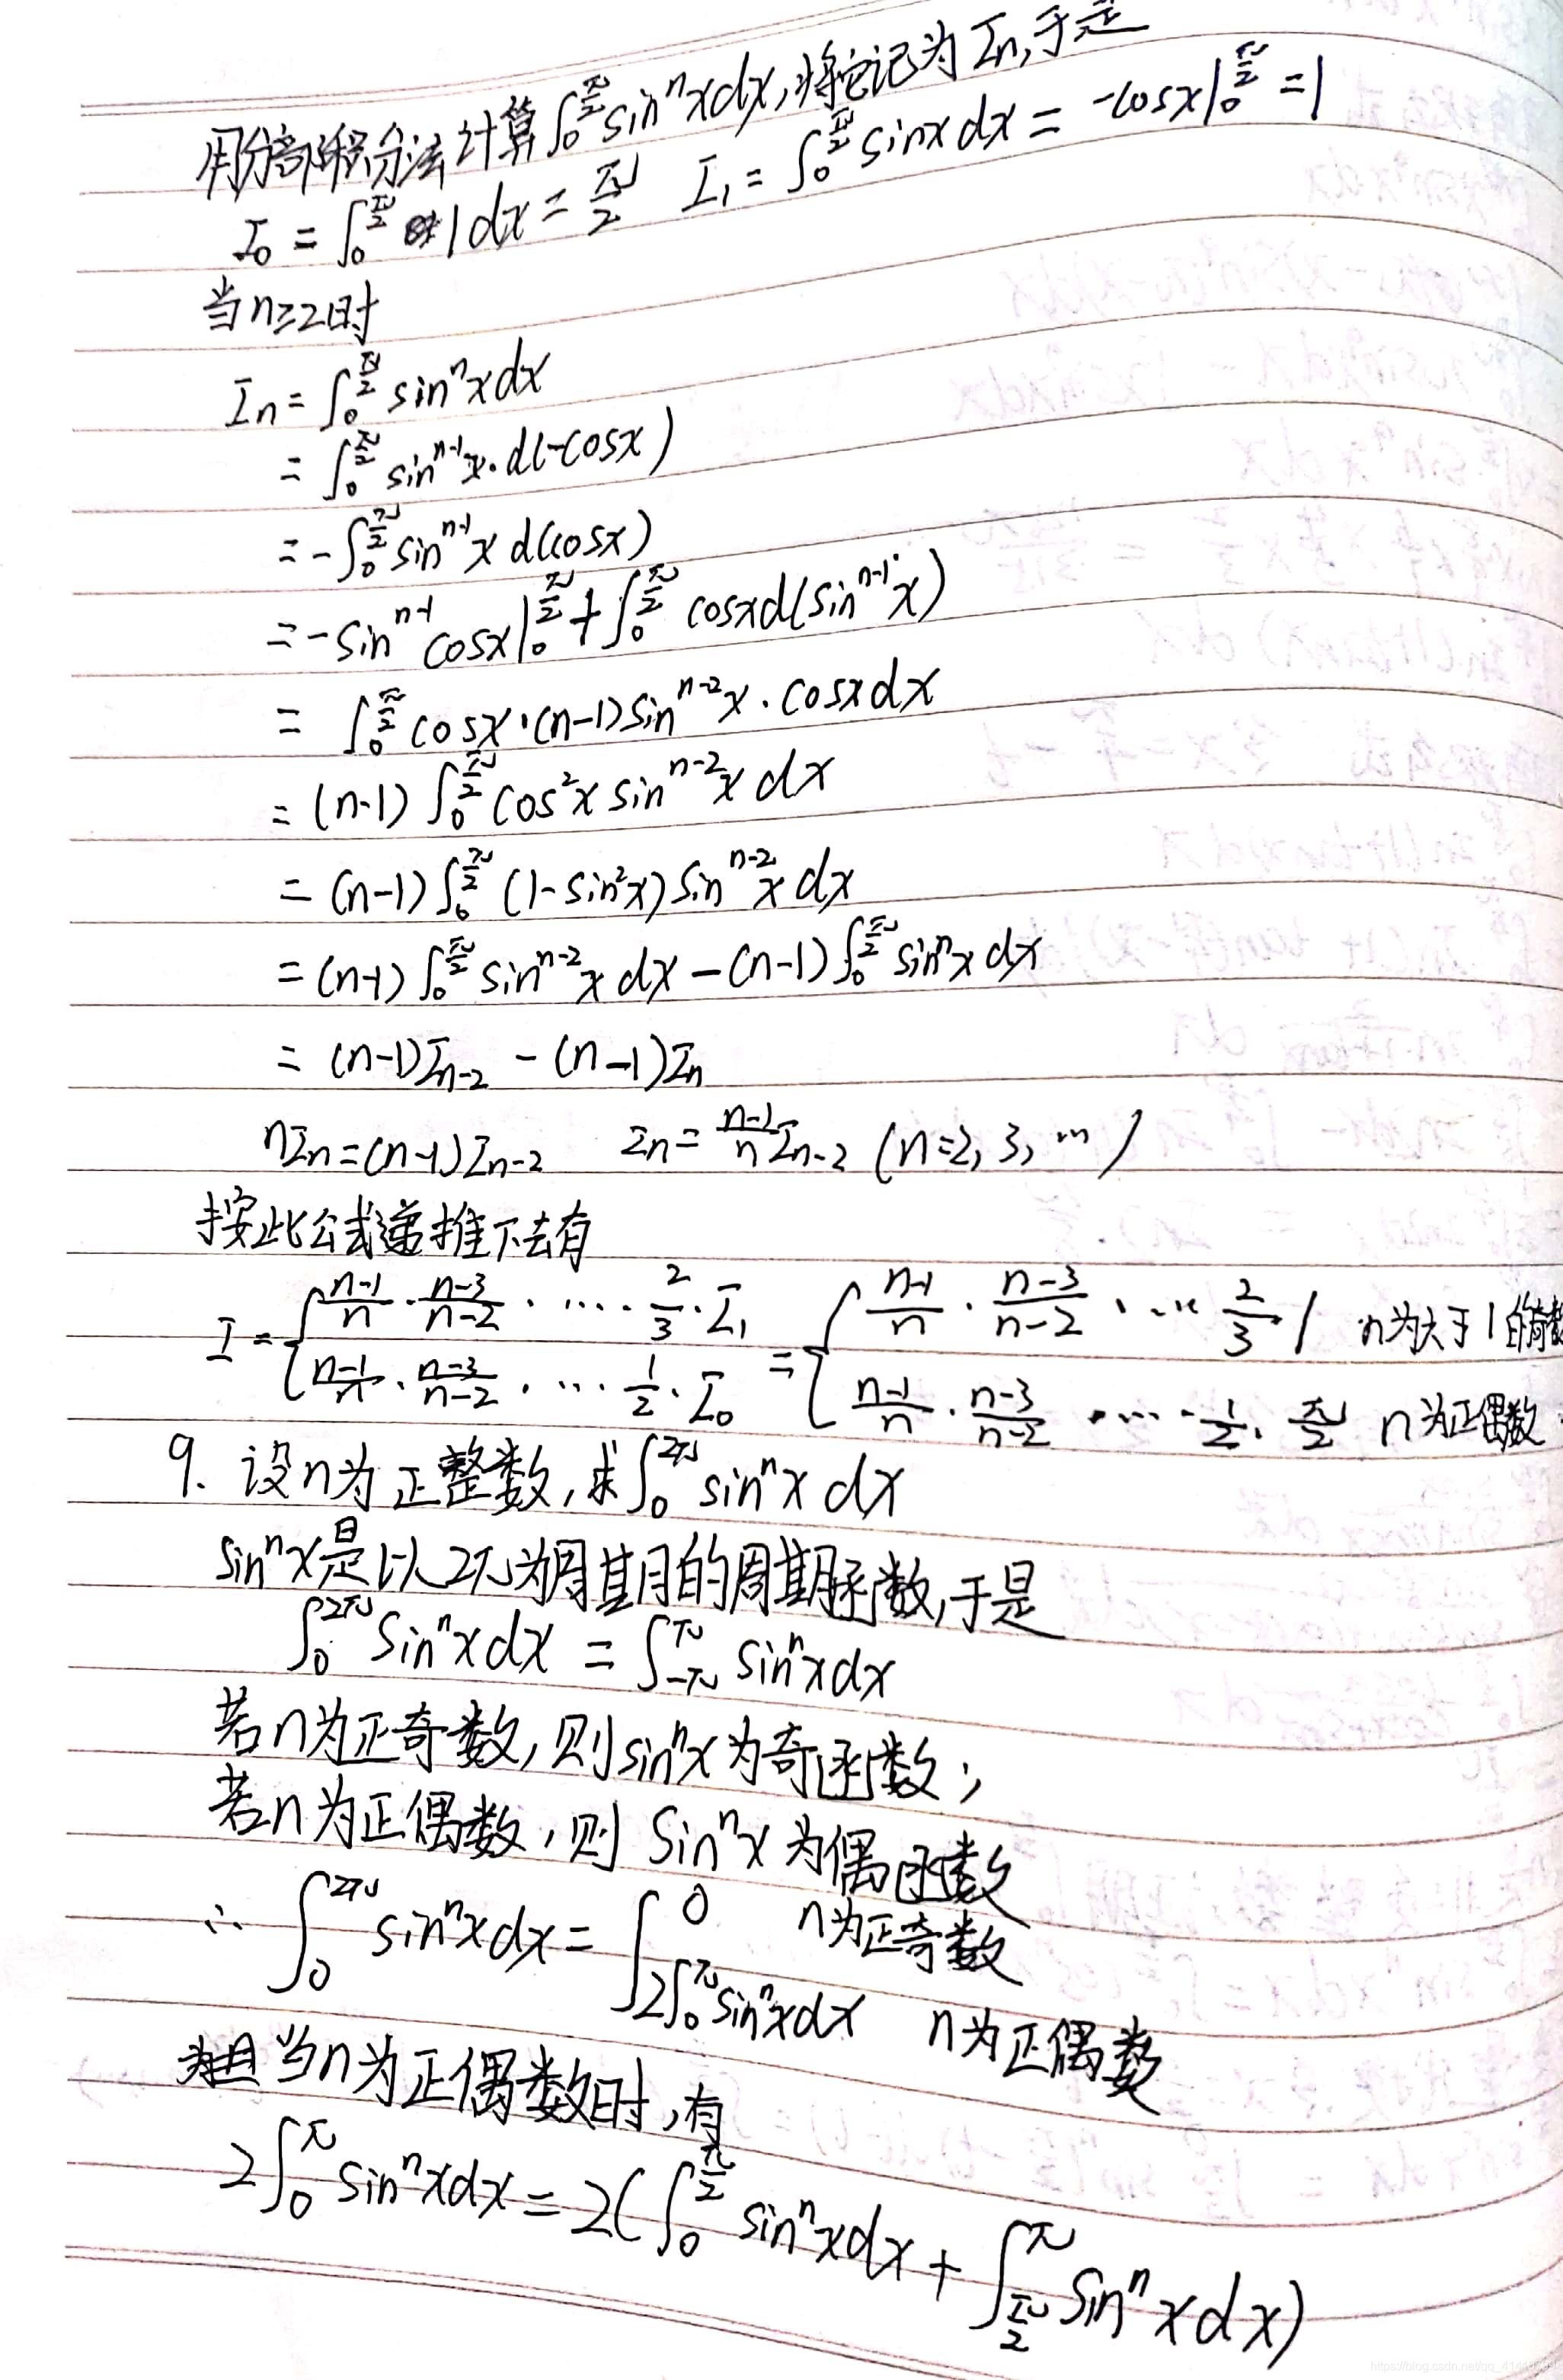 用分部积分法计算∫₀^(π/2) sinⁿxdx,将它记为 Iₙ,于是
I₀ = ∫₀^(π/2) 1dx = π/2 I₁ = ∫₀^(π/2) sinxdx = -cosx|₀^(π/2) = 1
当n≥2时
Iₙ = ∫₀^(π/2) sinⁿxdx
= ∫₀^(π/2) sinⁿ⁻¹x·d(-cosx)
= -∫₀^(π/2) sinⁿ⁻¹x d(cosx)
= -sinⁿ⁻¹cosx|₀^(π/2) + ∫₀^(π/2) cosxd(sinⁿ⁻¹x)
= ∫₀^(π/2) cosx·(n-1)sinⁿ⁻²x·cosxdx
= (n-1)∫₀^(π/2) cos²x sinⁿ⁻²x dx
= (n-1)∫₀^(π/2) (1-sin²x)sinⁿ⁻²x dx
= (n-1)∫₀^(π/2) sinⁿ⁻²x dx - (n-1)∫₀^(π/2) sinⁿx dx
= (n-1)Iₙ₋₂ - (n-1)Iₙ
nIₙ = (n-1)Iₙ₋₂ Iₙ = (n-1)/n Iₙ₋₂ (n=2, 3, …)
按此公式递推下去有
I = { (n-1)/n · (n-3)/(n-2) · …· 2/3 · I₁ = { (n-1)/n · (n-3)/(n-2) · … 2/3 · 1 n为大于1的奇数
(n-1)/n · (n-3)/(n-2) · … 1/2 · I₀ (n-1)/n · (n-3)/(n-2) · … · 1/2 · π/2 n为正偶数
9. 设n为正整数,求∫₀^(2π) sinⁿx dx
sinⁿx是以2π为周期的周期函数,于是
∫₀^(2π) sinⁿxdx = ∫₋π^π sinⁿxdx
若n为正奇数,则sinⁿx为奇函数;
若n为正偶数,则 sinⁿx为偶函数
∴ ∫₀^(2π) sinⁿxdx = { 0 n为正奇数
2∫₀^π sinⁿxdx n为正偶数
且当n为正偶数时,有
2∫₀^π sinⁿxdx = 2(∫₀^(π/2) sinⁿxdx + ∫_(π/2)^π sinⁿxdx)